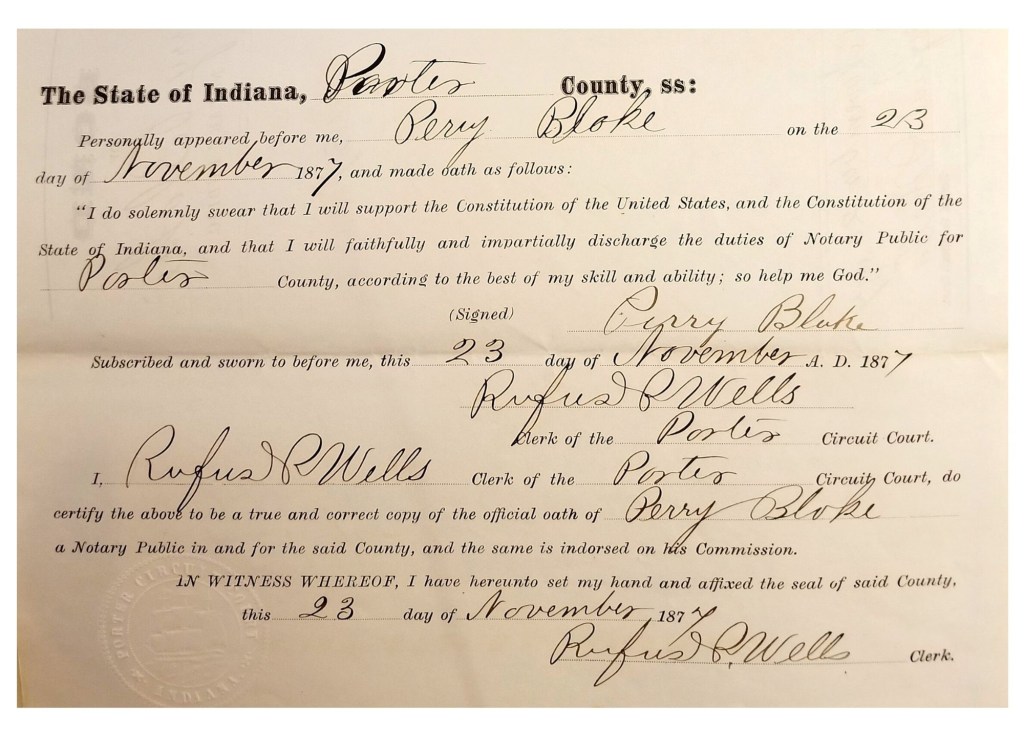 The State of Indiana, Porter County, ss:
Personally appeared before me, Perry Blake on the 23
day of November 1877, and made oath as follows:
"I do solemnly swear that I will support the Constitution of the United States, and the Constitution of the
State of Indiana, and that I will faithfully and impartially discharge the duties of Notary Public for
Porter County, according to the best of my skill and ability; so help me God."
(Signed) Perry Blake
Subscribed and sworn to before me, this 23 day of November A. D. 1877
Rufus P Wells
Clerk of the Porter Circuit Court.
I, Rufus P Wells Clerk of the Porter Circuit Court, do
certify the above to be a true and correct copy of the official oath of Perry Blake
a Notary Public in and for the said County, and the same is indorsed on his Commission.
IN WITNESS WHEREOF, I have hereunto set my hand and affixed the seal of said County,
this 23 day of November 1877
Rufus P. Wells Clerk.
PORTER CIRCUIT
INDIANA